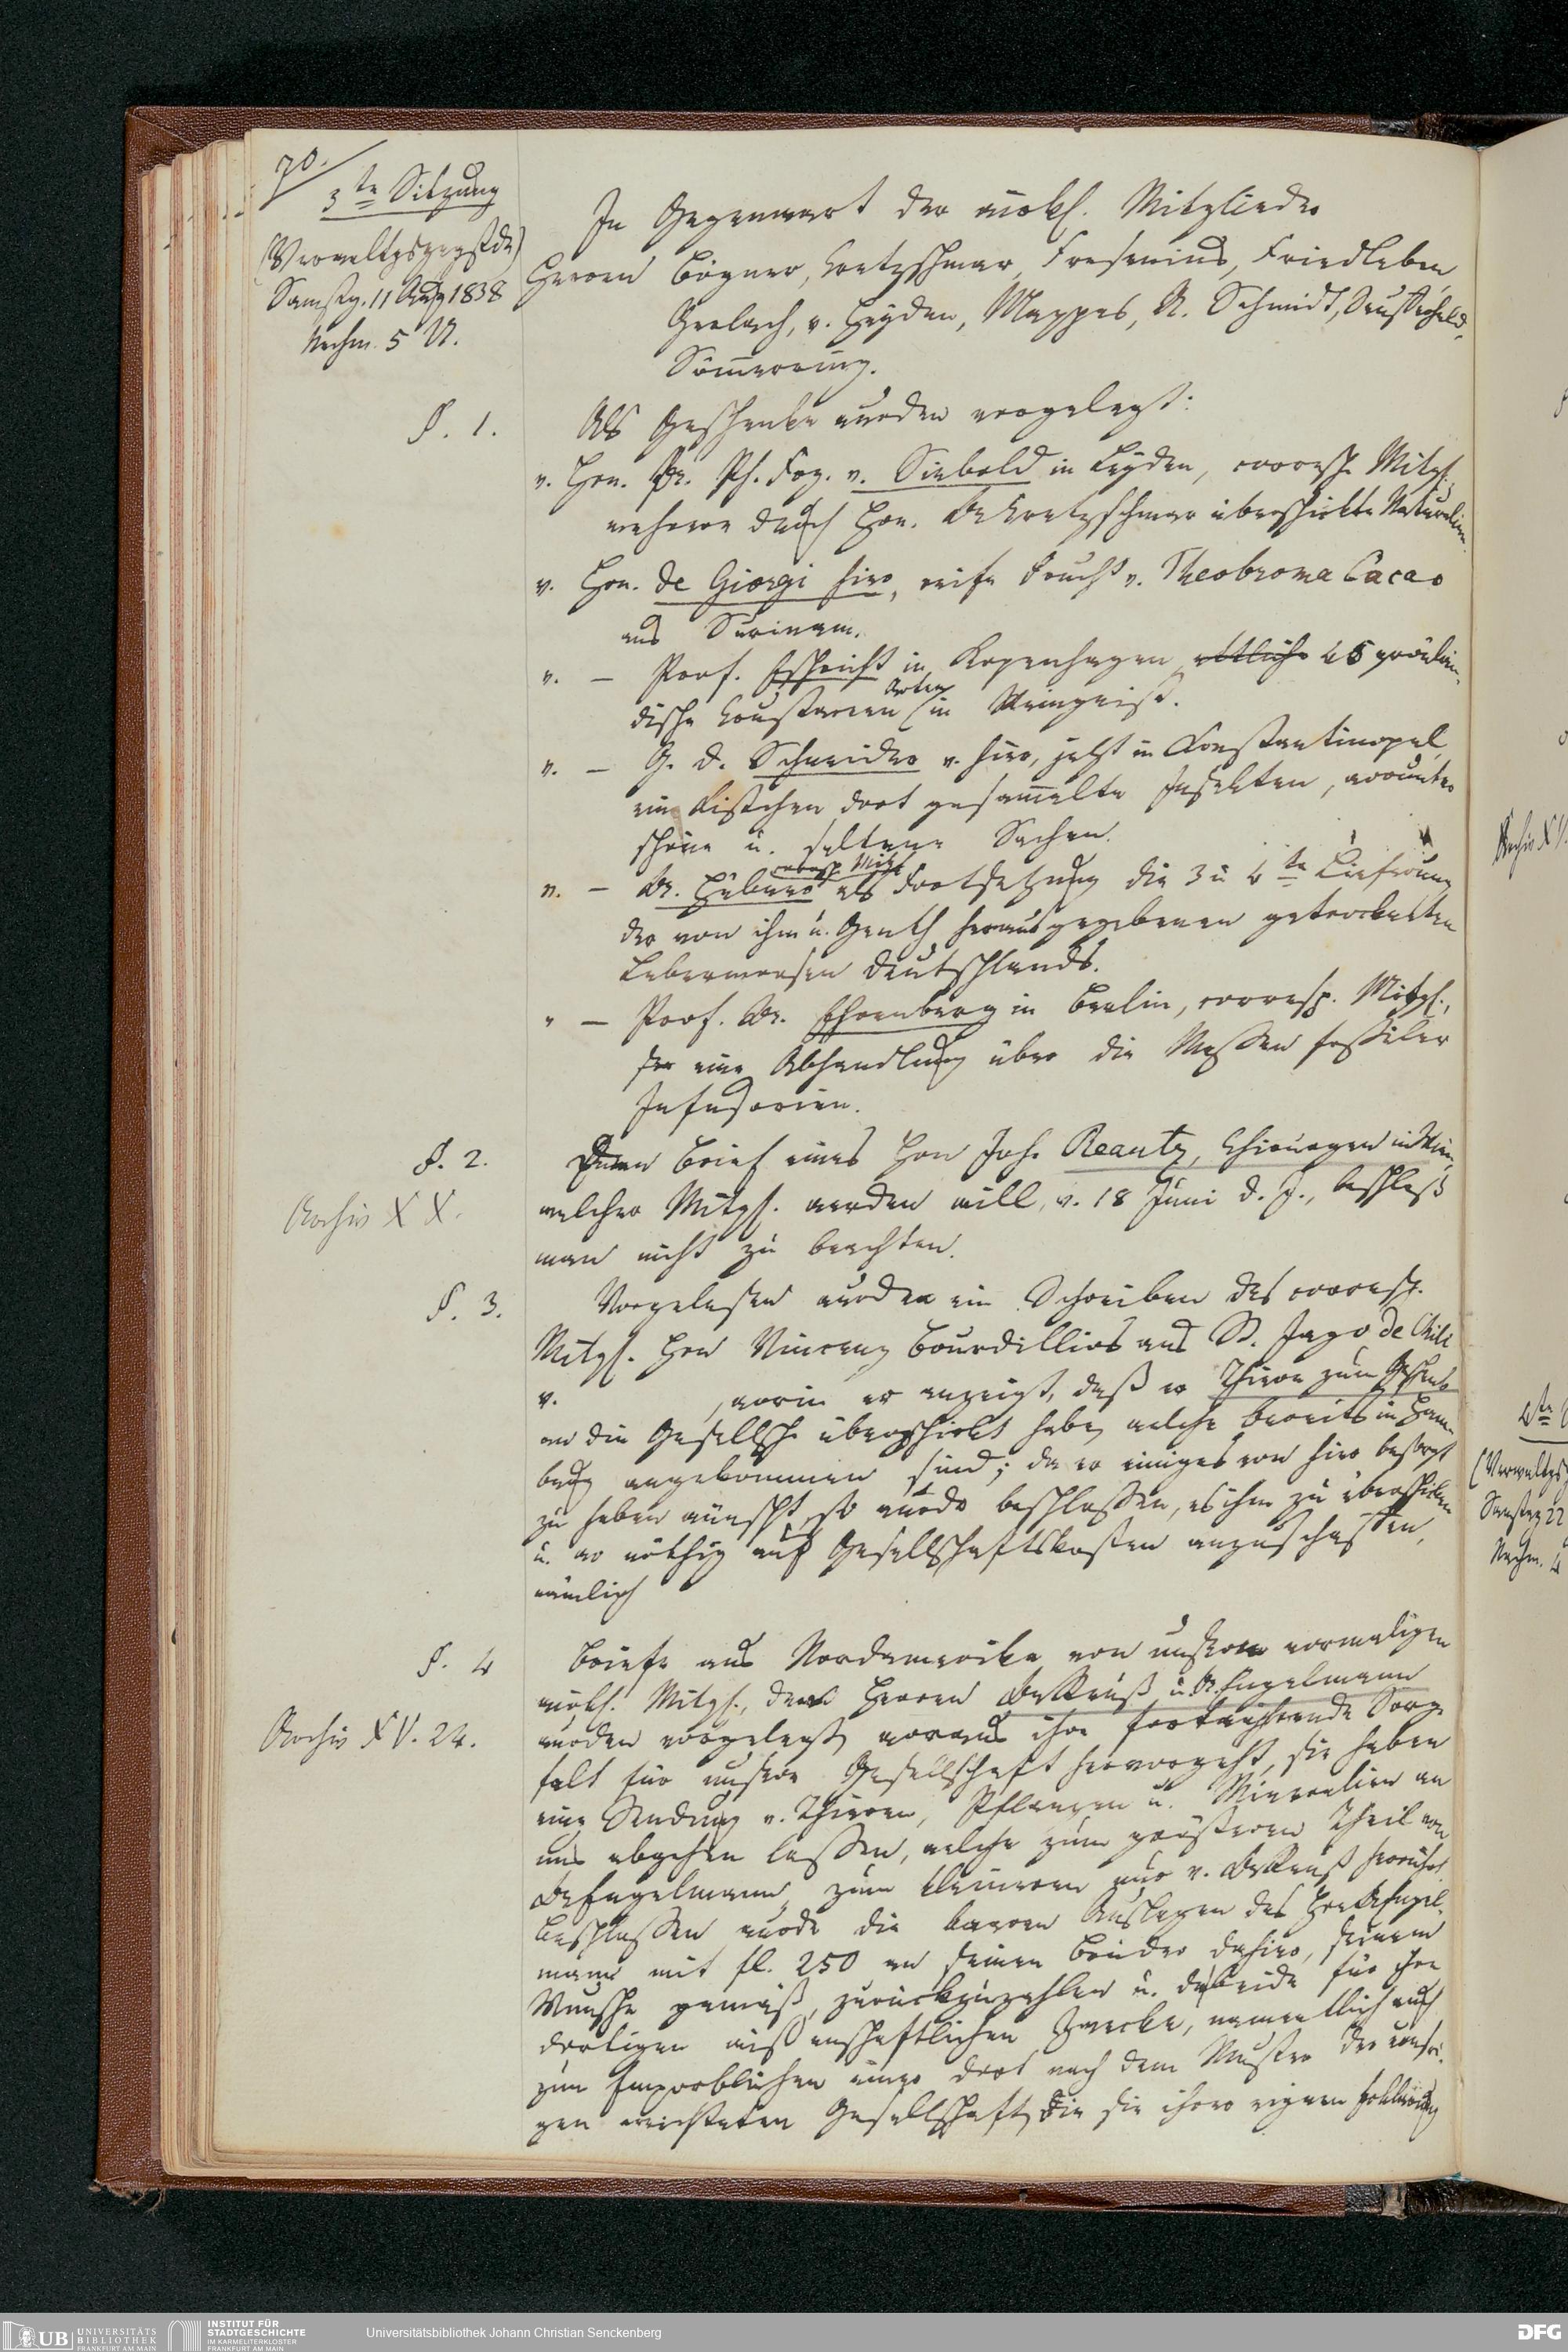 70.
3te Sitzung
(Verwaltgsgegstde)
Samstg. 11 Aug 1838
Nachm. 5 U.
In Gegenwart der wirkl. Mitglieder
Herren Bögner, Cretzschmar, Fresenius, Friedleben
Gerlach, v. Heyden, Mappes, A. Schmidt,
Sömmerring.
§. 1.
Als Geschenke wurden vorgelegt:
v. Hrn. Dr. Ph. Frz. v. Siebold in Leyden, corresp. Mitgl.
mehrere durch Hrn. Dr Cretzschmar überschickte Naturalien.
v. Hrn. de Giorgi hier, reife Frucht v. Theobroma Cacao
aus Surinam.
v. — Prof. Eschricht in Kopenhagen etliche 45 grönlän-
dische Crustaceen Arten in Weingeist.
v. — G. A. Schneider v. hier, jetzt in Constantinopel
ein Kistchen dort gesammelte Insekten, worunter
schöne u. seltene Sachen.
v. — Dr. Hübener corresp. Mitgl. als Fortsetzung die 3 u 4te Lieferung
der von ihm u. Genth herausgegebenen getrockneten
Lebermoosen Deutschlands.
" — Prof. Dr. Ehrenberg in Berlin, corresp. Mitgl.,
eine Abhandlung über die Massen fossiler
Infusorien.
§. 2.
Archiv XX.
Einen Brief eines Hrn Joh. Reautz, Chirurgen in Wien,
welcher Mitgl. werden will, v. 18 Juni d. J., beschloß
man nicht zu beachten.
§. 3.
Vorgelesen wurden ein Schreiben des corresp.
Mitgl. Hrn Vincenz Bourdillier aus St. Jago de Chili
v. , worin er anzeigt, daß er Thiere zum Geschenk
an die Gesellsch überschickt habe, welche bereits in Ham-
burg angekommen sind; da er einiges von hier besorgt
zu haben wünscht, so wurde beschlossen, es ihm zu überschicken
u. wo nöthig auf Gesellschaftskosten anzuschaffen,
nämlich
§. 4
Archiv XV. 24.
Briefe aus Nordamerika von unsern vormaligen
wirkl. Mitgl., den Herren Dr Reuß u. Dr. Engelmann
wurden vorgelegt, woraus ihre fortwährende Sorg-
falt für unsere Gesellschaft hervorgeht, sie haben
eine Sendung v. Thieren, Pflanzen u. Mineralien an
uns abgehen lassen, welche zum größeren Theil von
Dr Engelmann, zum kleineren nur v. Dr Reuß herrührt.
Beschlossen wurde die baaren Auslagen des Hrn Dr Engel-
mann mit fl. 250 an seinen Bruder dahier, seinem
Wunsche gemäß, zurückzuzahlen u. da beide für ihre
dortigen wissenschaftlichen Zwecke, namentlich auch
zum Emporblühen einer dort nach dem Muster der unsri-
gen errichteten Gesellschaft, die sie ihrer eignen Erklärung
UB UNIVERSITÄTS BIBLIOTHEK FRANKFURT AM MAIN
INSTITUT FÜR STADTGESCHICHTE IM KARMELITERKLOSTER FRANKFURT AM MAIN
Universitätsbibliothek Johann Christian Senckenberg
DFG